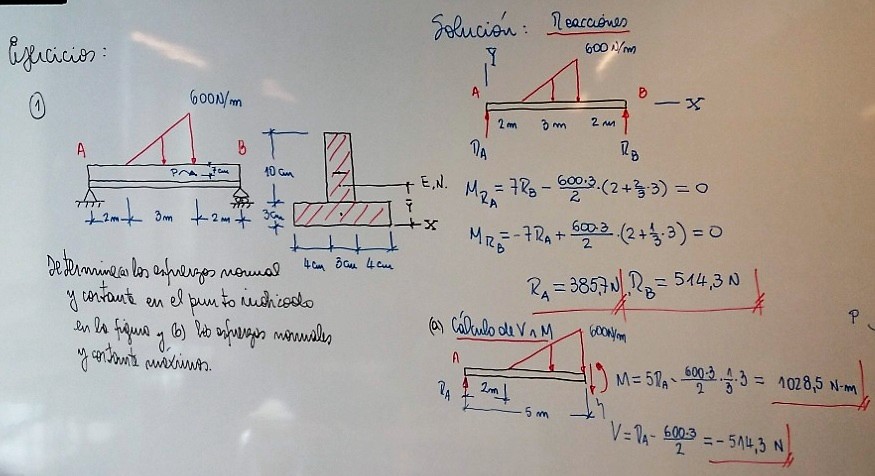 Ejercicios:
1
600N/m
A
B
P
7cm
2m
3m
2m
10 cm
3cm
E.N.
Ȳ
X
4cm 3cm 4cm
Determine (a) los esfuerzos normal
y cortante en el punto indicado
en la figura y (b) los esfuerzos normales
y cortante máximos.
Solución: Reacciones
600 N/m
Y
A
B
X
2m 3m 2m
RA
RB
MRA = 7RB - 600·3/2 ·(2+2/3·3) = 0
MRB = -7RA + 600·3/2 ·(2+1/3·3) = 0
RA = 385,7N, RB = 514,3 N
(a) Cálculo de V ∧ M
600N/m
A
RA
2m
5 m
M = 5RA - 600·3/2 · 1/3 ·3 = 1028,5 N-m
V = RA - 600·3/2 = -514,3 N
P